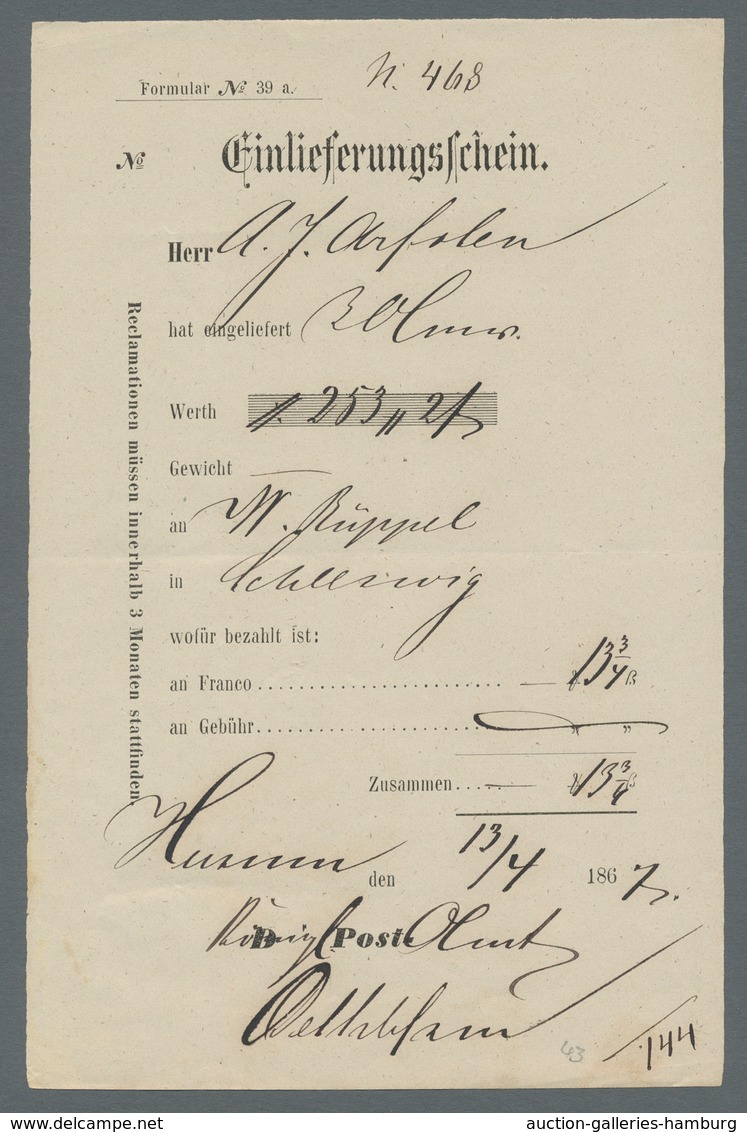 N. 468
Formular № 39 a.
№
Einlieferungsschein.
Herr A. J.
hat eingeliefert
Werth 253 " 2
Gewicht —
an W. Rüppel
in Schleswig
wofür bezahlt ist:
an Franco........................ — " 13 3/4 ß
an Gebühr........................ " "
Zusammen..... — " 13 3/4 ß
Husum den 13/4 1867.
Königl. Post Amt
Reclamationen müssen innerhalb 3 Monaten stattfinden.
43
144
auction-galleries-hamburg